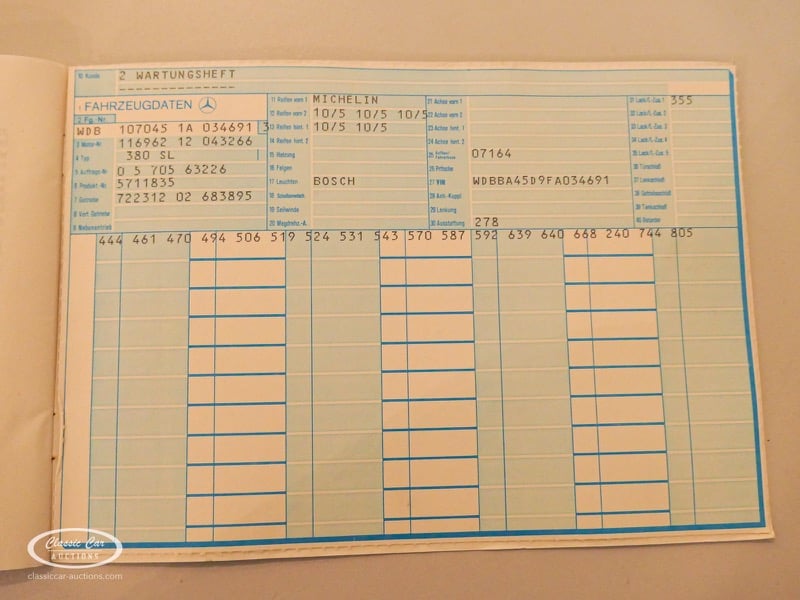 10 Kunde 2 WARTUNGSHEFT
--------------
1 FAHRZEUGDATEN
2 Fg. Nr.
WDB 107045 1A 034691 3
3 Motor-Nr 116962 12 043266
4 Typ 380 SL
5 Auftrags-Nr 0 5 705 63226
6 Produkt.-Nr 5711835
7 Getriebe 722312 02 683895
8 Vert. Getriebe
9 Nebenantrieb
11 Reifen vorn 1 MICHELIN
12 Reifen vorn 2 10/5 10/5 10/5
13 Reifen hint. 1 10/5 10/5
14 Reifen hint. 2
15 Heizung
16 Felgen
17 Leuchten BOSCH
18
19 Seilwinde
20 Magdrehz.-A.
21 Achse vorn 1
22 Achse vorn 2
23 Achse hint. 1
24 Achse hint. 2
25 Aufbau/Fahrerhaus 07164
26 Pritsche
27 VIN WDBBA45D9FA034691
28 Anh.-Kuppl.
29 Lenkung
30 Ausstattung 278
31 Lack/l.-Zus. 1 355
32 Lack/l.-Zus. 2
33 Lack/l.-Zus. 3
34 Lack/l.-Zus. 4
35 Lack/l.-Zus. 5
36 Türschloß
37 Lenkschloß
38
39 Tankschloß
40 Retarder
444 461 470 494 506 519 524 531 543 570 587 592 639 640 668 240 744 805
Classic Car
AUCTIONS
classiccar-auctions.com